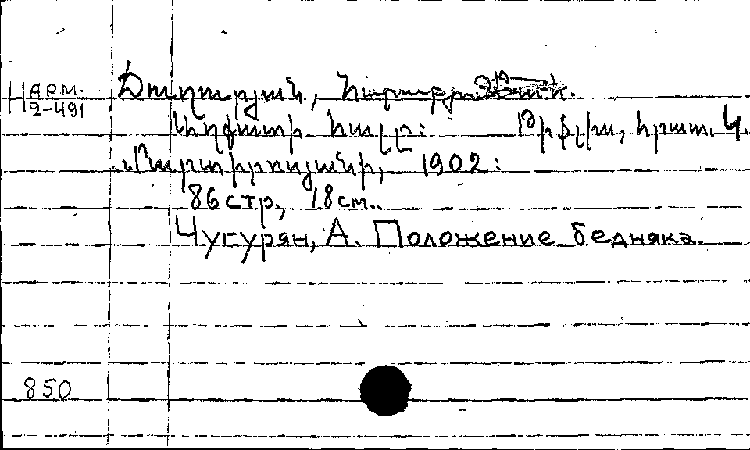 Н АРМ. 2-491
Ճուղուրյան,
Աղքատի հալը: Թիֆլիս, հրատ. Կ.
Մարտիրոսյանի, 1902:
86 стр., 18 см..
Чугурян, А. Положение бедняка.
850